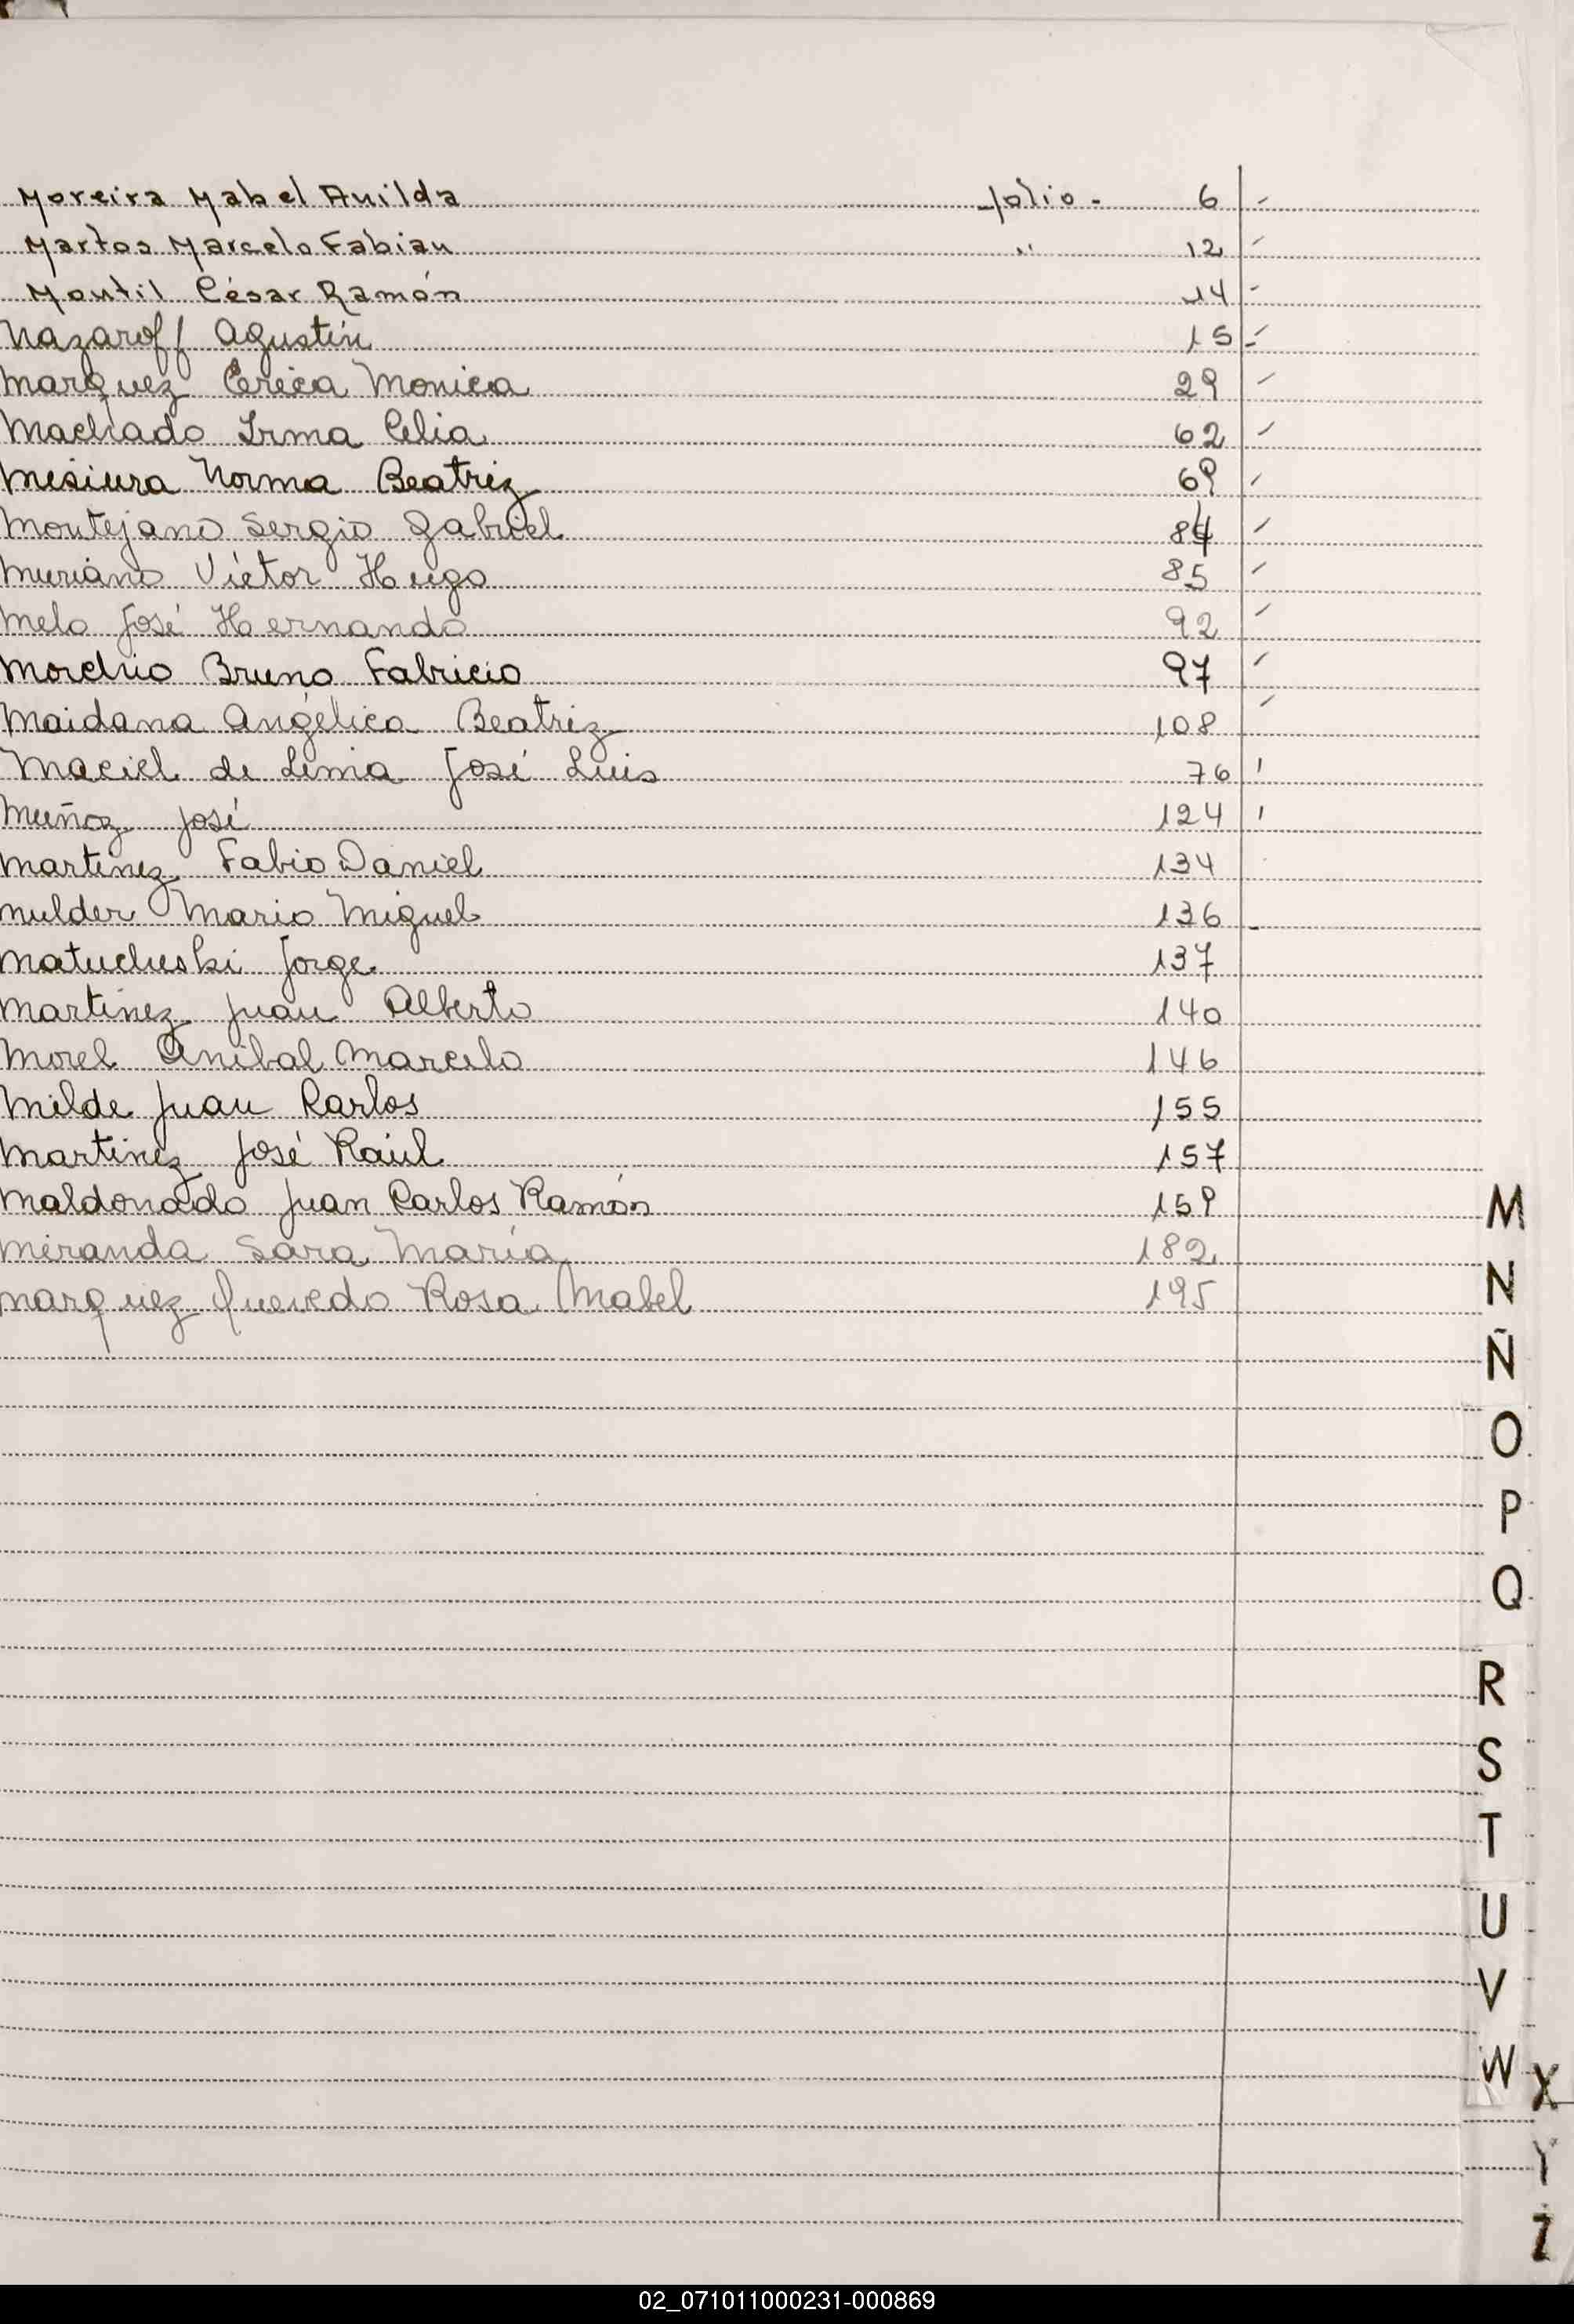 Moreira Mabel Anilda folio - 6 -
Martos Marcelo Fabian " 12 -
Montil César Ramón 14 -
Nazaroff Agustin 15 -
Marquez Erica Monica 29 -
Machado Irma Celia 62 -
Mesiura Norma Beatriz 69 -
Montejano Sergio Gabriel 84 -
Muriano Victor Hugo 85 -
Melo José Hernando 92 -
Morchio Bruno Fabricio 97 -
Maidana Angélica Beatriz 108 -
Maciel de Lima José Luis 76 '
Muñoz José 124 '
Martinez Fabio Daniel 134
Mulder Mario Miguel 136 -
Matucheski Jorge 137
Martinez Juan Alberto 140
Morel Anibal Marcelo 146
Milde Juan Carlos 155
Martinez José Raúl 157
Maldonado Juan Carlos Ramón 159
Miranda Sara María 182
Marquez Quevedo Rosa Mabel 195
M
N
Ñ
O
P
Q
R
S
T
U
V
W
X
Y
Z
02_071011000231-000869